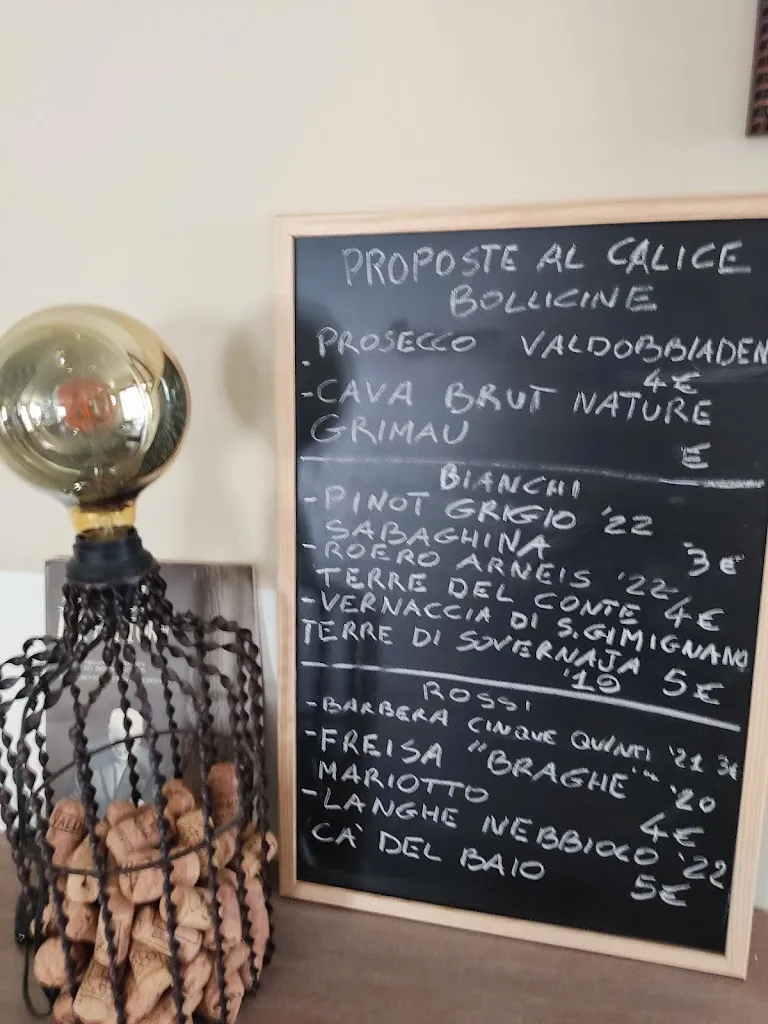 PROPOSTE AL CALICE
BOLLICINE
. PROSECCO VALDOBBIADEN
4€
- CAVA BRUT NATURE
GRIMAU
€
BIANCHI
- PINOT GRIGIO '22
SABAGHINA
3€
- ROERO ARNEIS '22
TERRE DEL CONTE 4€
- VERNACCIA DI S.GIMIGNANO
TERRE DI SOVERNAJA
'19 5€
ROSSI
- BARBERA CINQUE QUINTI '21 3€
- FREISA "BRAGHE" '20
MARIOTTO
4€
- LANGHE NEBBIOLO '22
CA' DEL BAIO
5€